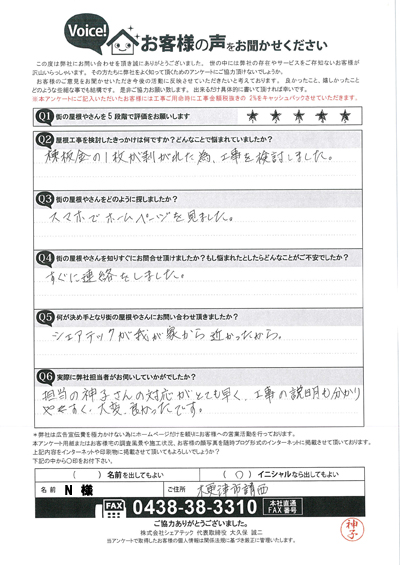 Voice!
お客様の声をお聞かせください
この度は弊社にお問い合わせを頂き誠にありがとうございました。世の中には弊社の存在やサービスをご存知ないお客様が
沢山いらっしゃいます。その方たちに弊社をよく知って頂くためのアンケートにご協力頂けないでしょうか。
お客様のご意見をお聞かせいただき今後の活動に反映させていただきたいと考えております。良かったこと、嬉しかったこと
どのような些細な事でも結構です。是非ご協力お願い致します。出来るだけ具体的に書いて頂ければ幸いです。
※本アンケートにご記入いただいたお客様には工事ご用命時に工事金額税抜きの 2%をキャッシュバックさせていただきます。
Q1 街の屋根やさんを5段階で評価をお願いします ★ ★ ★ ★ ★
Q2 屋根工事を検討したきっかけは何ですか?どんなことで悩まれていましたか?
棟板金の1枚が剥がれた為、工事を検討しました。
Q3 街の屋根やさんをどのように探しましたか?
スマホでホームページを見ました。
Q4 街の屋根やさんを知りすぐにお問合せ頂けましたか?もし悩まれたとしたらどんなことがご不安でしたか?
すぐに連絡をしました。
Q5 何が決め手となり街の屋根やさんにお問い合わせ頂きましたか?
シェアテックが我が家から近かったから。
Q6 実際に弊社担当者がお伺いしていかがでしたか?
担当の神子さんの対応がとても早く、工事の説明も分かり
やすく、大変、良かったです。
*弊社は広告宣伝費を極力かけない為にホームページだけを頼りにお客様への営業活動を行っております。
本アンケート用紙またはお客様宅の調査風景や施工状況、お客様の顔写真を随時ブログ形式のインターネットに掲載させて頂いております。
上記内容をインターネットや印刷物に掲載させて頂いてもよろしいでしょうか?
下記の中から○印をお付け下さい。
( ) 名前を出してもよい ( ○ ) イニシャルなら出してもよい
名前 N 様 ご住所 木更津市請西
FAX 0438-38-3310 本社直通 FAX番号
ご協力ありがとうございました。
株式会社シェアテック 代表取締役 大久保 誠二
当アンケートで取得したお客様の個人情報は関係法規に基づき厳正に管理いたします。
神子